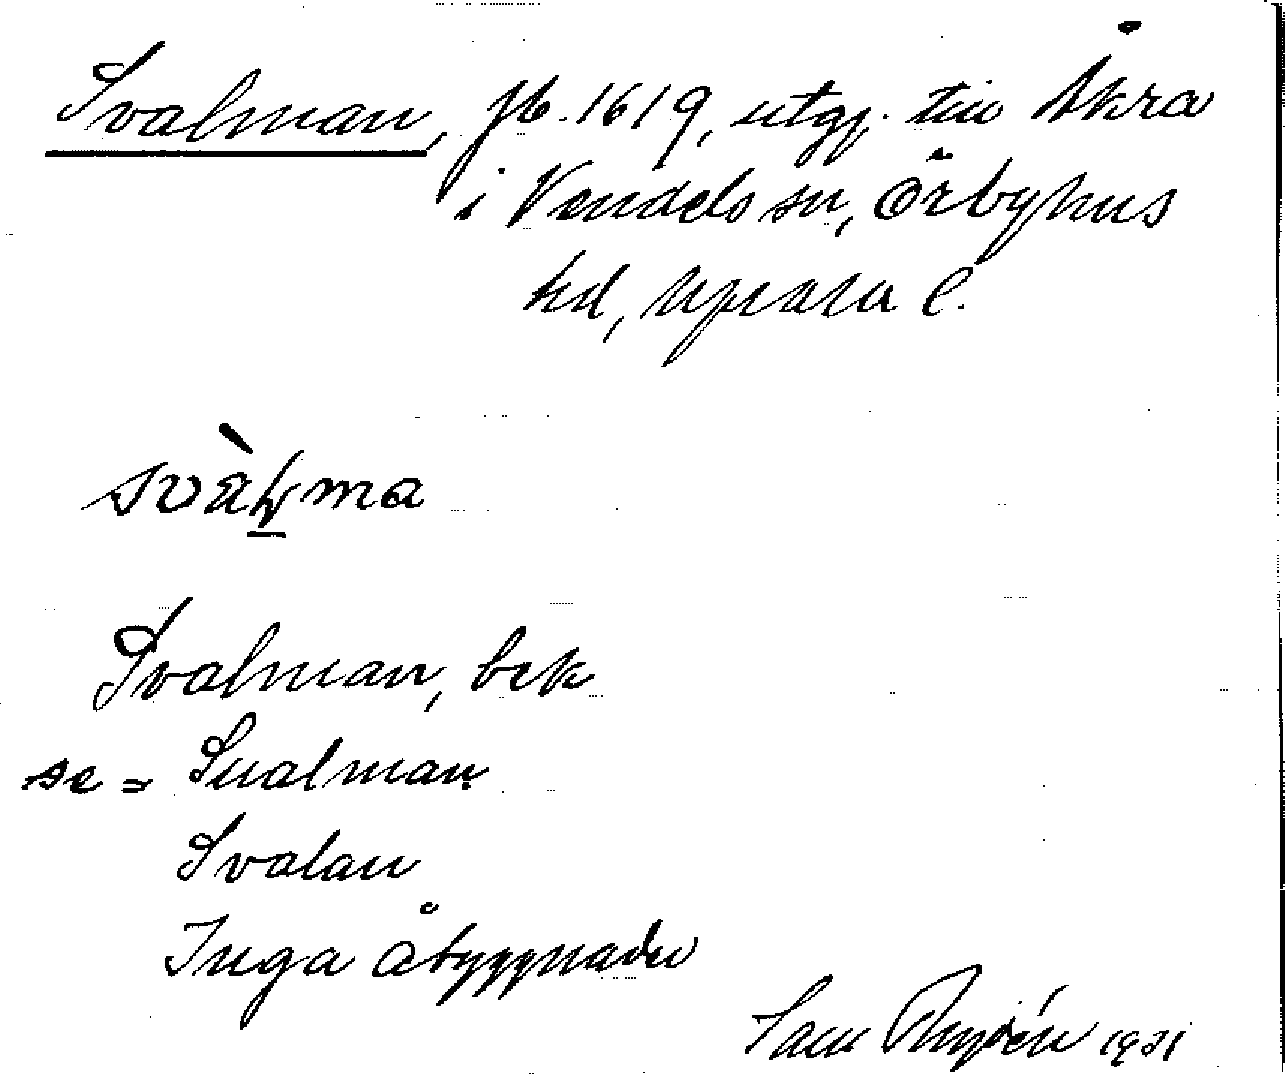 Svalman, jb. 1619, utgj. till Åkra
i Vendels sn, Örbyhus
hd, Upsala l.
svàḷma
Svalman, bek
se = Sualman
Svalan
Inga åbyggnader
Sam Rydén 1931